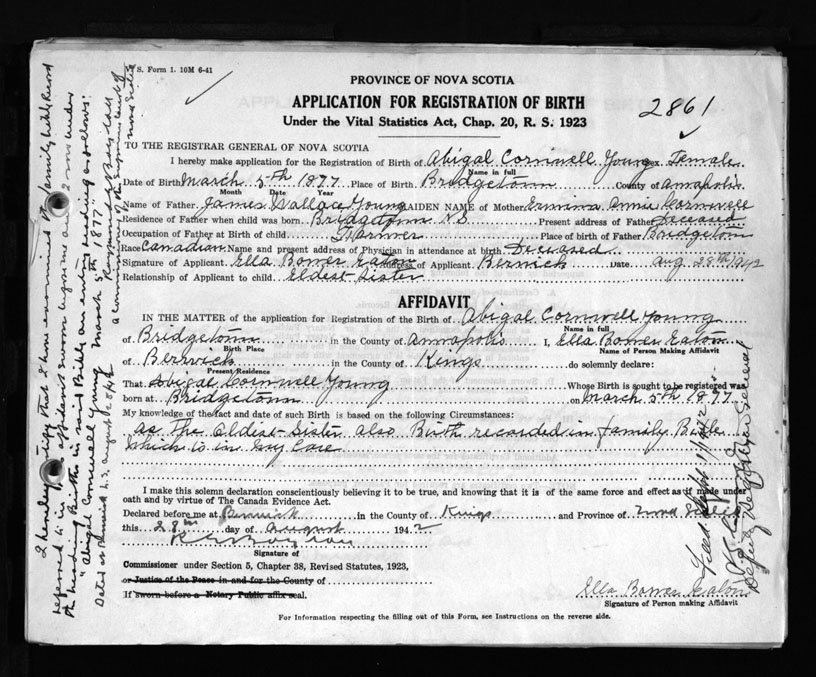 S. Form 1. 10M 6-41
PROVINCE OF NOVA SCOTIA
APPLICATION FOR REGISTRATION OF BIRTH
2861
Under the Vital Statistics Act, Chap. 20, R. S. 1923
TO THE REGISTRAR GENERAL OF NOVA SCOTIA
I hereby make application for the Registration of Birth of Abigal Cornwell Young sex Female
Name in full
Date of Birth March 5th 1877 Place of Birth Bridgetown County of Annapolis
Month Date Year
Name of Father James Wallace Young MAIDEN NAME of Mother Ermina Annie Cornwell
Residence of Father when child was born Bridgetown N.S Present address of Father Deceased
Occupation of Father at Birth of child Farmer Place of birth of Father Bridgetown
Race Canadian Name and present address of Physician in attendance at birth Deceased
Signature of Applicant Ella Bower Eaton Address of Applicant Berwick Date Aug 28th 1942
Relationship of Applicant to child Eldest Sister
AFFIDAVIT
IN THE MATTER of the application for Registration of the Birth of Abigal Cornwell Young
Name in full
of Bridgetown in the County of Annapolis I, Ella Bower Eaton
Birth Place Name of Person Making Affidavit
of Berwick in the County of Kings do solemnly declare:
Present Residence
That Abigal Cornwell Young Whose Birth is sought to be registered was
born at Bridgetown on March 5th 1877
My knowledge of the fact and date of such Birth is based on the following Circumstances:
as The Eldest Sister also Birth recorded in family Bible
which is in my Care
I make this solemn declaration conscientiously believing it to be true, and knowing that it is of the same force and effect as if made under
oath and by virtue of The Canada Evidence Act.
Declared before me at Berwick in the County of Kings and Province of Nova Scotia
this 28th day of August 1942
Signature of
Commissioner under Section 5, Chapter 38, Revised Statutes, 1923,
or Justice of the Peace in and for the County of
If sworn before a Notary Public affix seal.
Ella Bower Eaton
Signature of Person making Affidavit
For Information respecting the filling out of this Form, see Instructions on the reverse side.
I hereby certify that I have examined the family bible record
referred to in the affidavit sworn before me and now under
the heading Births in said Bible an entry reading as follows:
"Abigal Cornwell Young March 5th 1877"
Dated at Berwick N.S. August 28th 1942
a commissioner of the Supreme Court of
Nova Scotia
Filed Sept
Deputy Registrar General